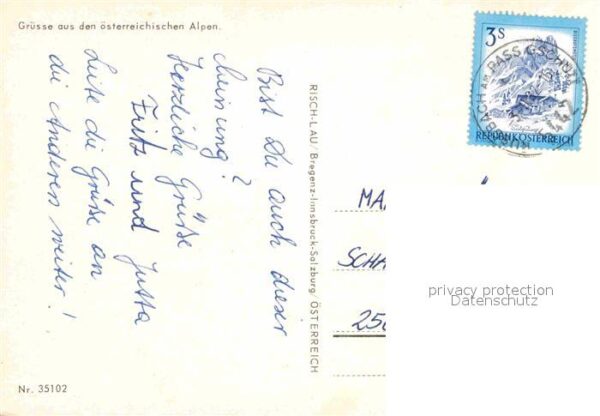 Grüsse aus den österreichischen Alpen.
Bist Du auch dieser
Meinung?
Herzliche Grüße
Fritz und Jutta
Leite die Grüße an
die Anderen weiter!
RISCH-LAU/Bregenz-Innsbruck-Salzburg/ÖSTERREICH
3S
REPUBLIK ÖSTERREICH
BACH AM PASS GSCHÜTT
MA
SCHA
250
privacy protection
Datenschutz
Nr. 35102